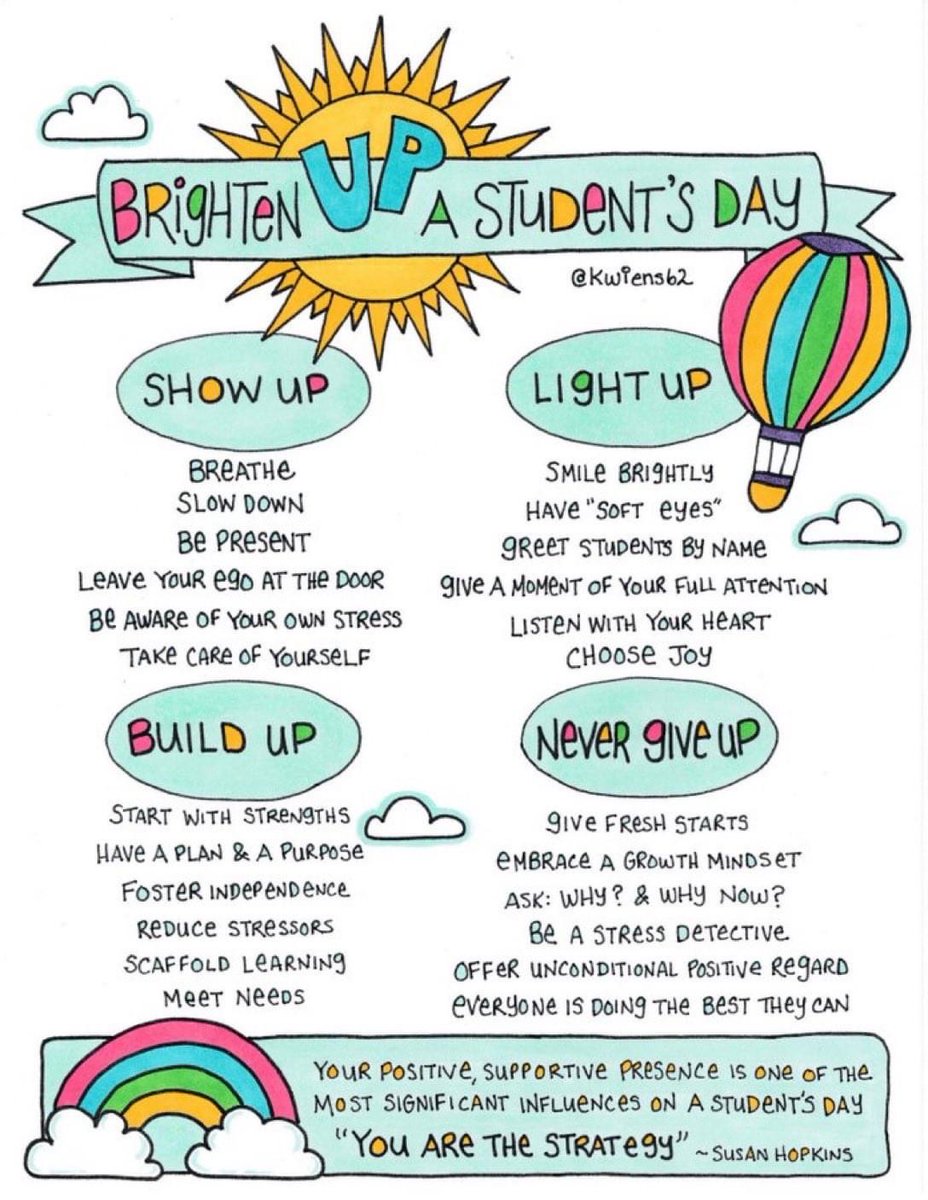 BRIGHTEN UP A STUDENT'S DAY
@Kwiens62
SHOW UP
BREATHE
SLOW DOWN
BE PRESENT
LEAVE YOUR EGO AT THE DOOR
BE AWARE OF YOUR OWN STRESS
TAKE CARE OF YOURSELF
LIGHT UP
SMILE BRIGHTLY
HAVE "SOFT EYES"
GREET STUDENTS BY NAME
GIVE A MOMENT OF YOUR FULL ATTENTION
LISTEN WITH YOUR HEART
CHOOSE JOY
BUILD UP
START WITH STRENGTHS
HAVE A PLAN & A PURPOSE
FOSTER INDEPENDENCE
REDUCE STRESSORS
SCAFFOLD LEARNING
MEET NEEDS
NEVER GIVE UP
GIVE FRESH STARTS
EMBRACE A GROWTH MINDSET
ASK: WHY? & WHY NOW?
BE A STRESS DETECTIVE
OFFER UNCONDITIONAL POSITIVE REGARD
EVERYONE IS DOING THE BEST THEY CAN
YOUR POSITIVE, SUPPORTIVE PRESENCE IS ONE OF THE
MOST SIGNIFICANT INFLUENCES ON A STUDENT'S DAY
"YOU ARE THE STRATEGY" ~SUSAN HOPKINS